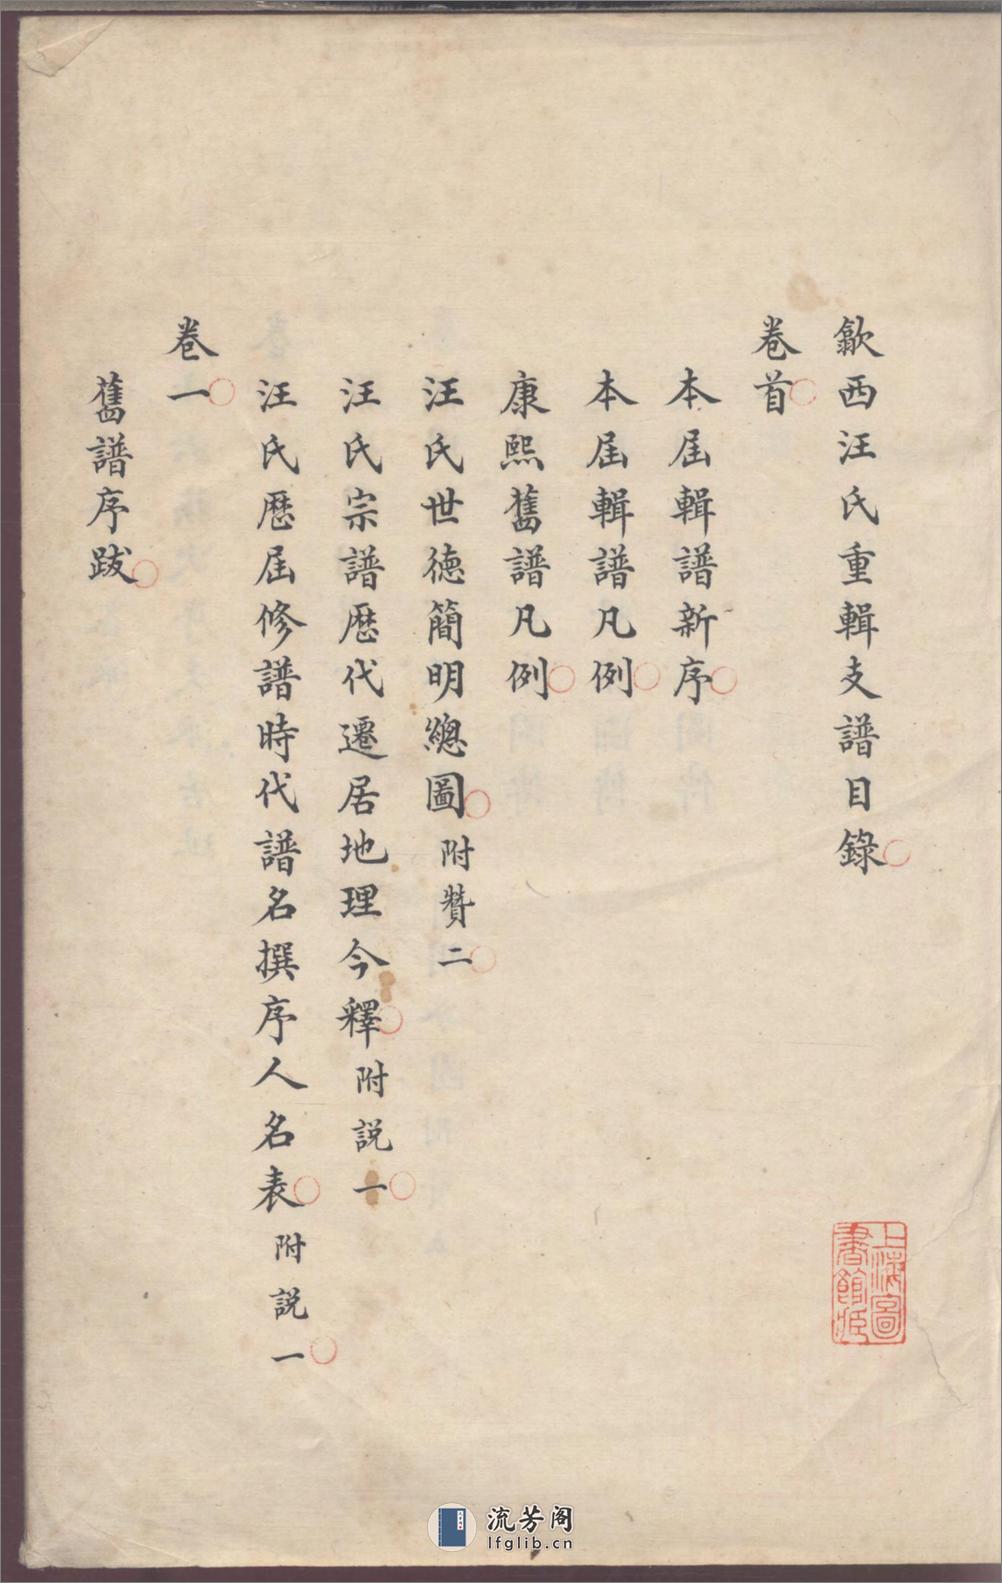 歙西汪氏重輯支譜目錄
卷首
本屆輯譜新序
本屆輯譜凡例
康熙舊譜凡例
汪氏世德簡明總圖附贊二
汪氏宗譜歷代遷居地理今釋附説一
汪氏歷屆修譜時代譜名撰序人名表附説一
卷一
舊譜序跋
上海圖
書館藏
流芳阁
lfglib.cn